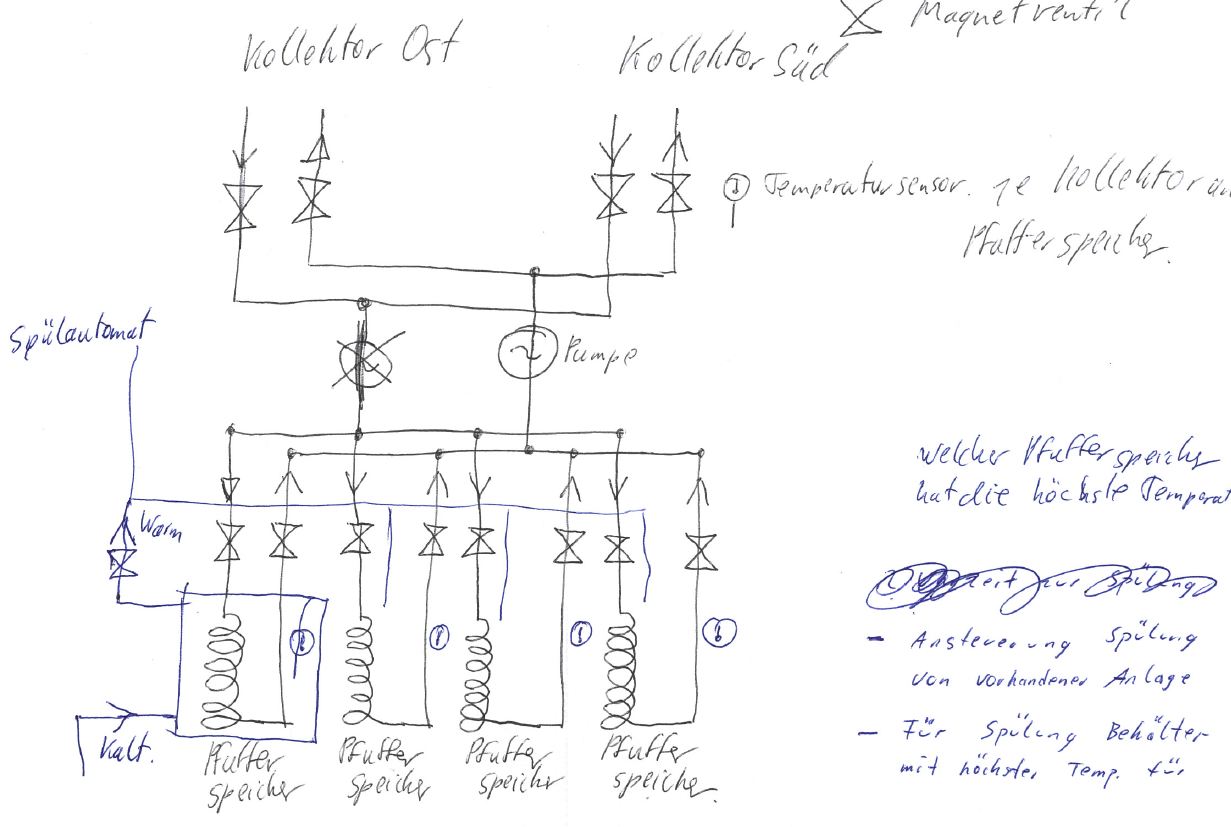 Magnetventil
Kollektor Ost
Kollektor Süd
Temperatursensor. je Kollektor
Pfufferspeicher.
Spülautomat
Pumpe
welcher Pfufferspeicher
hat die höchste Temperat
Warm
zur Spülung
- Ansteuerung Spülung
von vorhandener Anlage
- Für Spülung Behälter
mit höchster Temp. für
Kalt.
Pfuffer
speicher
Pfuffer
speicher
Pfuffer
speicher
Pfuffer
speicher.